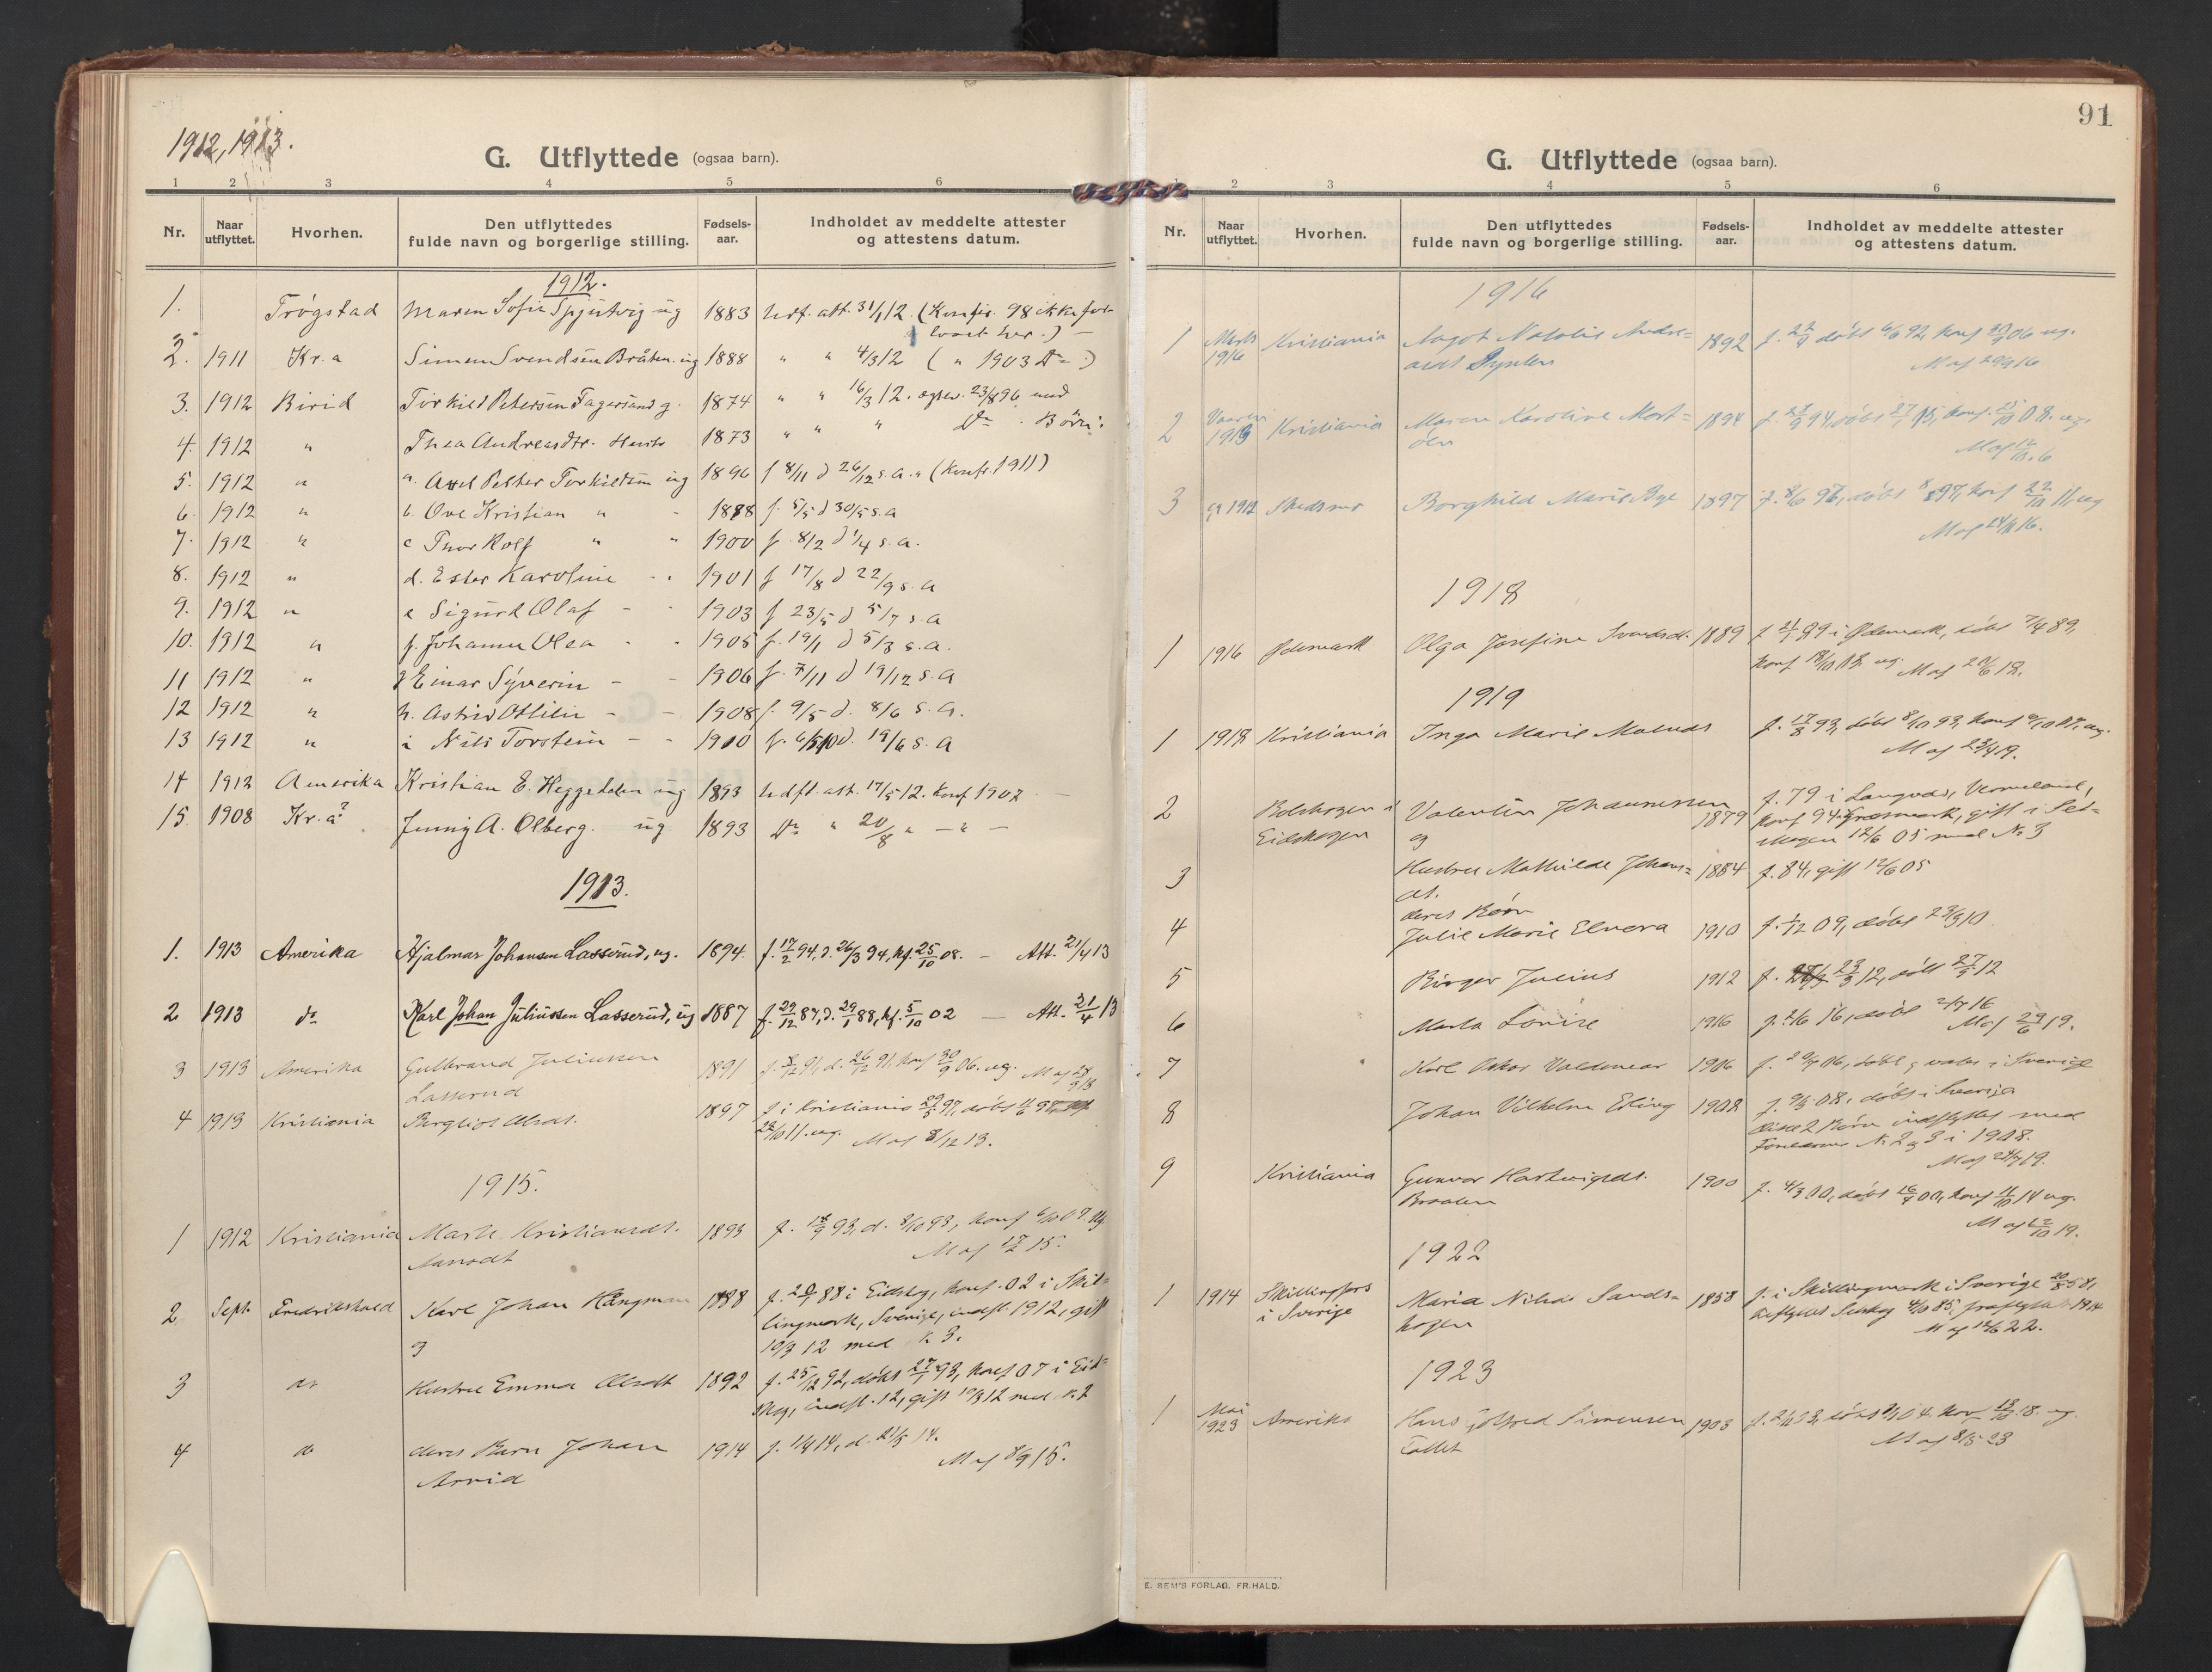 1912, 1913.
G. Utflyttede (ogsaa barn).
1 2 3 4 5 6
Nr. Naar utflyttet. Hvorhen. Den utflyttedes fulde navn og borgerlige stilling. Fødsels-aar. Indholdet av meddelte attester og attestens datum.
1912.
1. Trøgstad Maren Sofie ug 1883 Udf. att. 31/1 12. (Konfir. 98 ikke
her.) –
2. 1911 Kr.a Simen Svendsen Bråten ug 1888 " " 4/3 12 ( " 1903 Do )
3. 1912 Birid Torkild Petersen Fagersand g. 1874 " " 16/3 12. 23/8 96 med
4. 1912 " Thea Andreasdtr. Hustr 1873 " " " Do . Børn:
5. 1912 " a. Axel Petter Torkildsen ug 1896 f 8/11 d 26/12 s.a. (Konfr. 1911)
6. 1912 " b. Ove Kristian " - 1898 f. 5/5 d 30/5 s.a
7. 1912 " c Thor Rolf " " 1900 f. 8/2 d 1/4 s.a.
8. 1912 " d. Ester Karoline - - 1901 f 17/8 d 22/9 s.a
9. 1912 " e Sigurd Olaf - - 1903 f 23/5 d 5/7 s.a
10. 1912 " f. Johanne Olea - - 1905 f. 19/1 d 5/3 s.a.
11 1912 " g Einar Syverin - - 1906 f. 7/11 d 19/12 s.a
12 1912 " h. Astrid Ottilie - - 1908 f. 9/5 d. 8/6 s.a.
13 1912 " i Nils Torstein - - 1910 f. 6/5 10 d. 19/6 s.a
14 1912 Amerika Kristian E. Heggedalen ug 1893 Udfl. att. 17/5 12. Konf 1907 –
15. 1908 Kr.a? Jenny A. Olberg. ug 1893 Do " 20/8 " – " –
1913.
1. 1913 Amerika Hjalmar Johansen Lasserud, ug. 1894. f. 17/2 94, d. 26/3 94, kf. 25/10 08. – Att. 21/4 13
2 1913 do Karl Johan Juliussen Lasserud, ug 1887 f. 29/12 87, d. 29/1 88, kf. 5/10 02 – Att. 21/4 13
3 1913 Amerika Gulbrand Juliussen 1891 f. 8/12 91, d. 26/12 91, konf 30/9 06. ug.
Lasserud
4 1913 Kristiania Bergliot Olsdt. 1897 f. i Kristiania 29/5 97, døbt
11. ug. M af 8/12 13.
1915.
1 1912 Kristiania Marte Kristiansdt. 1893 f. 18/9 93, d. 8/10 93, konf 6/10 07. ug
Aanødt M af 17/2 15.
2 Sept. Fredrikshald Karl Johan Kångman 1888 f. 20/1 88 i Eidskog, konf. 02 i Skil-
g lingmark, Sverige, indfl. 1912, gift
10/3 12 med N. 3.
3 do Hustru Emma Olsdt 1892 f. 25/12 92, døbt 27/1 93, konf 07 i Eid-
skog, indfl. 12, gift 10/3 12 med N. 2
4 do deres Barn Johan 1914 f. 1/4 14, d. 21/5 14.
Arvid M af 8/9 15.
91
G. Utflyttede (ogsaa barn).
1 2 3 4 5 6
Nr. Naar utflyttet. Hvorhen. Den utflyttedes fulde navn og borgerlige stilling. Fødsels-aar. Indholdet av meddelte attester og attestens datum.
1916
1 Marts 1916 Kristiania Aagot Natalie Andre- 1892 døbt 6/6 92, konf 06 ug.
asdt
2 Kristiania Maren Karoline Mort- 1894 08. ug.
3 1912 Skedsmo Borghild Marie Bye 1897 f. 8/6 97, døbt 97, konf 22/10 11, ug
M af 24/11 16.
1918
1 1916 Ødemark Olga Josefine Svendsdt. 1889 f 21/1 89 i Ødemark, døbt 7/4 89,
konf ug. M af 20/6 18.
1919
1 1918 Kristiania Inga Marie Malnes f. 17/8 93, døbt 8/10 93, konf 6/10 07, ug.
M af 23/4 19.
2 Bolskogen i Valentin Johannessen 1879 f. 79 i Langvas, Vermeland,
Eidskogen og konf 94 i Gresmark, gift i Set-
skogen 12/6 05 med N. 3
3 Hustru Mathilde Johans- 1884 f. 84, gift 12/6 05
dt.
deres Børn
4 Julie Marie Elvera 1910 f. 1/12 09, døbt 23/3 10
5 Birger Julius 1912 f. 23/3 12, døbt 27/5 12
6 Marta Lovise 1916 f. 2/6 16, døbt 2/7 16
M af 29/6 19.
7 Karl Oskar Valdemar 1906 f. 06, døbt i Sverige
8 Johan Vilhelm Erling 1908 f. 9/3 08, døbt i Sverige
Disse 2 Børn indflyttet med
Forældrene N. 2 og 3 i 1908.
M af 24/7 19.
9 Kristiania Gunvor Hartvigsdt. 1900 f. 4/3 00, døbt 16/4 00, konf 11/10 14 ug.
Braaten
1922
1 1914 Skillingfors Maria Nilsdt Sands- 1858 f. i Skillingmark i Sverige 20/8 58,
i Sverige kogen fraflyttet 1914
M af 22.
1923
1 Mai 1923 Amerika Hans Gotfred Simensen 1903
Tollet M af 8/5 23
E. SEM'S FORLAG. FR.HALD.